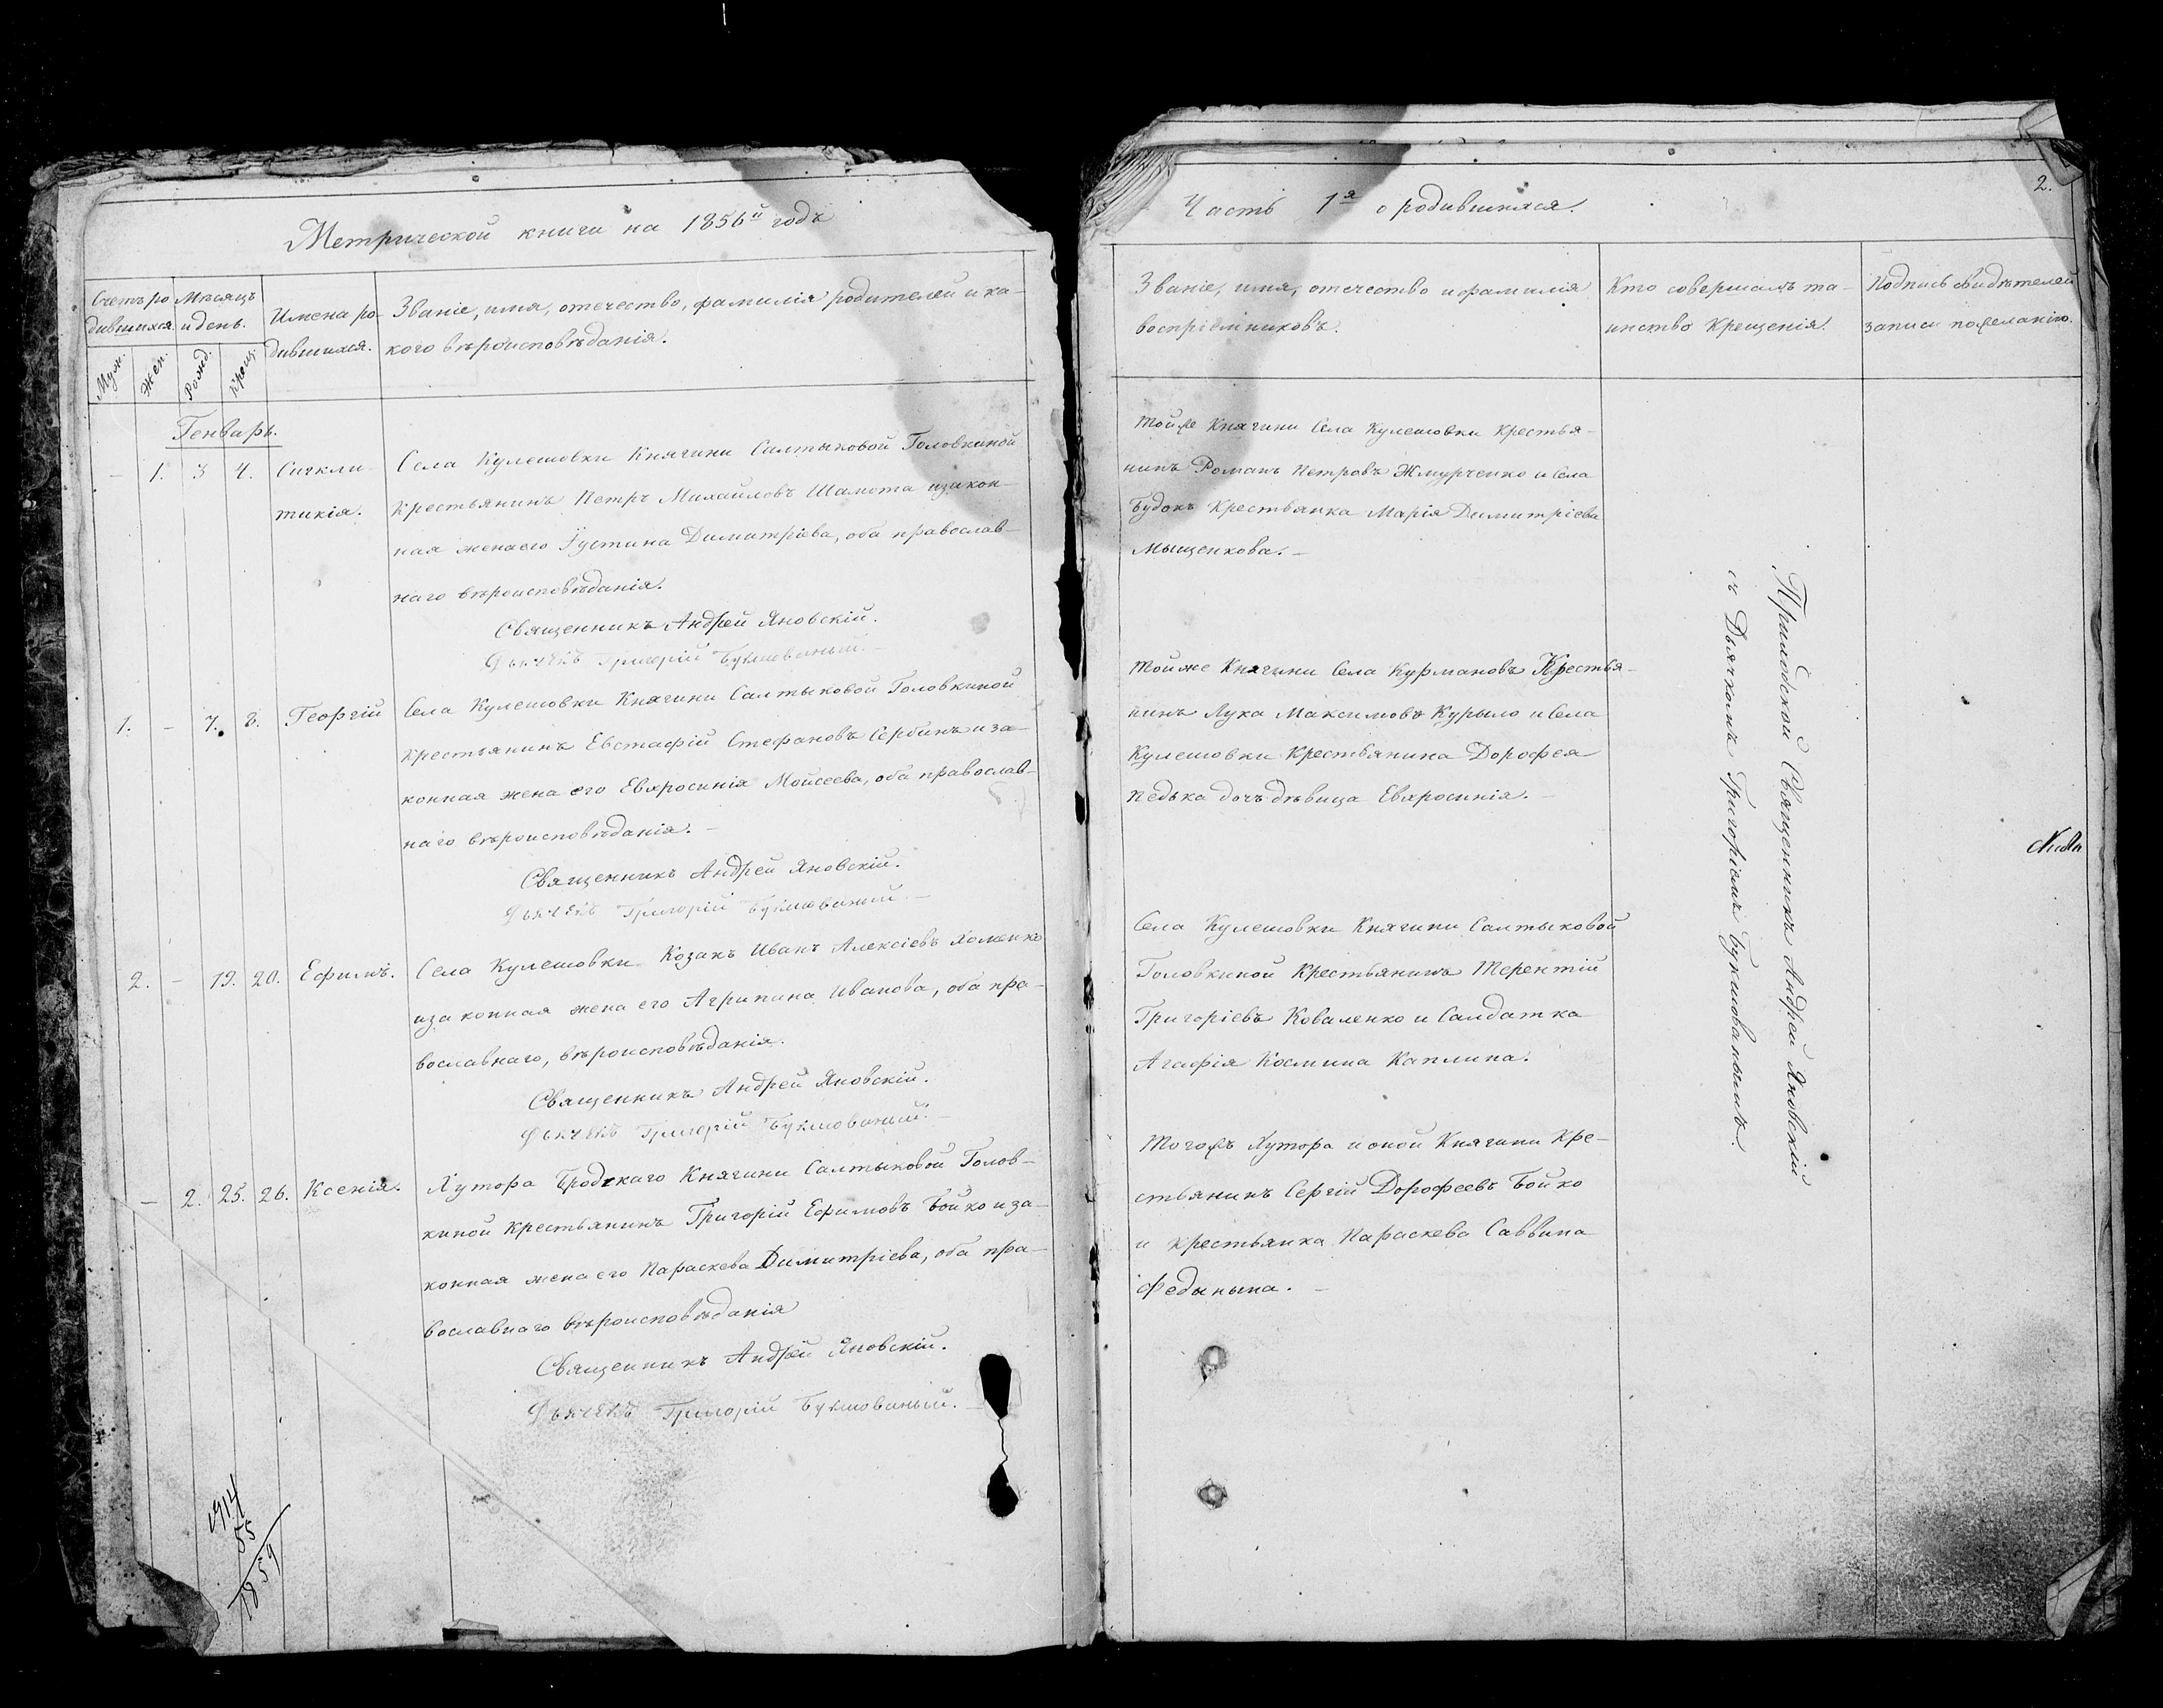 Метрической книги на 1856й годъ
Счетъ ро
дившихся
Мѣсяцъ
и день.
Имена ро-
дившихся.
Званіе, имя, отечество, фамилія родителей и ка-
кого вѣроисповѣданія.
Муж.
Жен.
Рожд.
Крещ.
Генварь.
— 1. 3 4. Сигкли-
тикія.
Села Кулешовки Княгини Салтыковой Головкиной
Крестьянинъ Петръ Михайловъ Шамота и закон-
ная жена его Іустина Димитріева, оба православ-
наго вѣроисповѣданія.
Священникъ Андрей Яновскій.
Дьячекъ Григорій Букшованый.—
1. — 7. 8. Георгій
Села Кулешовки Княгини Салтыковой Головкиной
Крестьянинъ Евстафій Стефановъ Сербинъ и за-
конная жена его Евхросинія Моисеева, оба православ-
наго вѣроисповѣданія.—
Священникъ Андрей Яновскій.
Дьячекъ Григорій Букшованый.—
2. — 19. 20. Ефимъ.
Села Кулешовки Козакъ Иванъ Алексіевъ Хоменко
и законная жена его Агрипина Иванова, оба пра-
вославнаго, вѣроисповѣданія.
Священникъ Андрей Яновскій.
Дьячекъ Григорій Букшованый.—
— 2. 25. 26. Ксенія.
Хутора Бродскаго Княгини Салтыковой Голов-
киной Крестьянинъ Григорій Ефимовъ Бойко и за-
конная жена его Параскева Димитріева, оба пра-
вославнаго вѣроисповѣданія
Священникъ Андрей Яновскій.
Дьячекъ Григорій Букшованый.—
55
1859
2.
Часть 1я о родившихся.
Званіе, имя, отечество и фамилія
воспріемниковъ.
Кто совершалъ та-
инство Крещенія.
Подпись свидѣтелей
записи по желанію.
Тойже Княгини Села Кулешовки Крестья-
нинъ Романъ Петровъ Жмурченко и Села
Будокъ Крестьянка Марія Димитріева
Мыщенкова.—
Тойже Княгини Села Курмановъ Крестья-
нинъ Лука Максимовъ Курыло и Села
Кулешовки Крестьянина Дорофея
Педька дочь дѣвица Евхросинія.—
Села Кулешовки Княгини Салтыковой
Головкиной Крестьянинъ Терентій
Григоріевъ Коваленко и Салдатка
Агафія Космина Каплина.
Тогожъ Хутора и оной Княгини Кре-
стьянинъ Сергій Дорофеевъ Бойко
и крестьянка Параскева Саввина
Федынына.—
Приходской Священникъ Андрей Яновскій
съ Дьячкомъ Григоріемъ Букшованымъ.